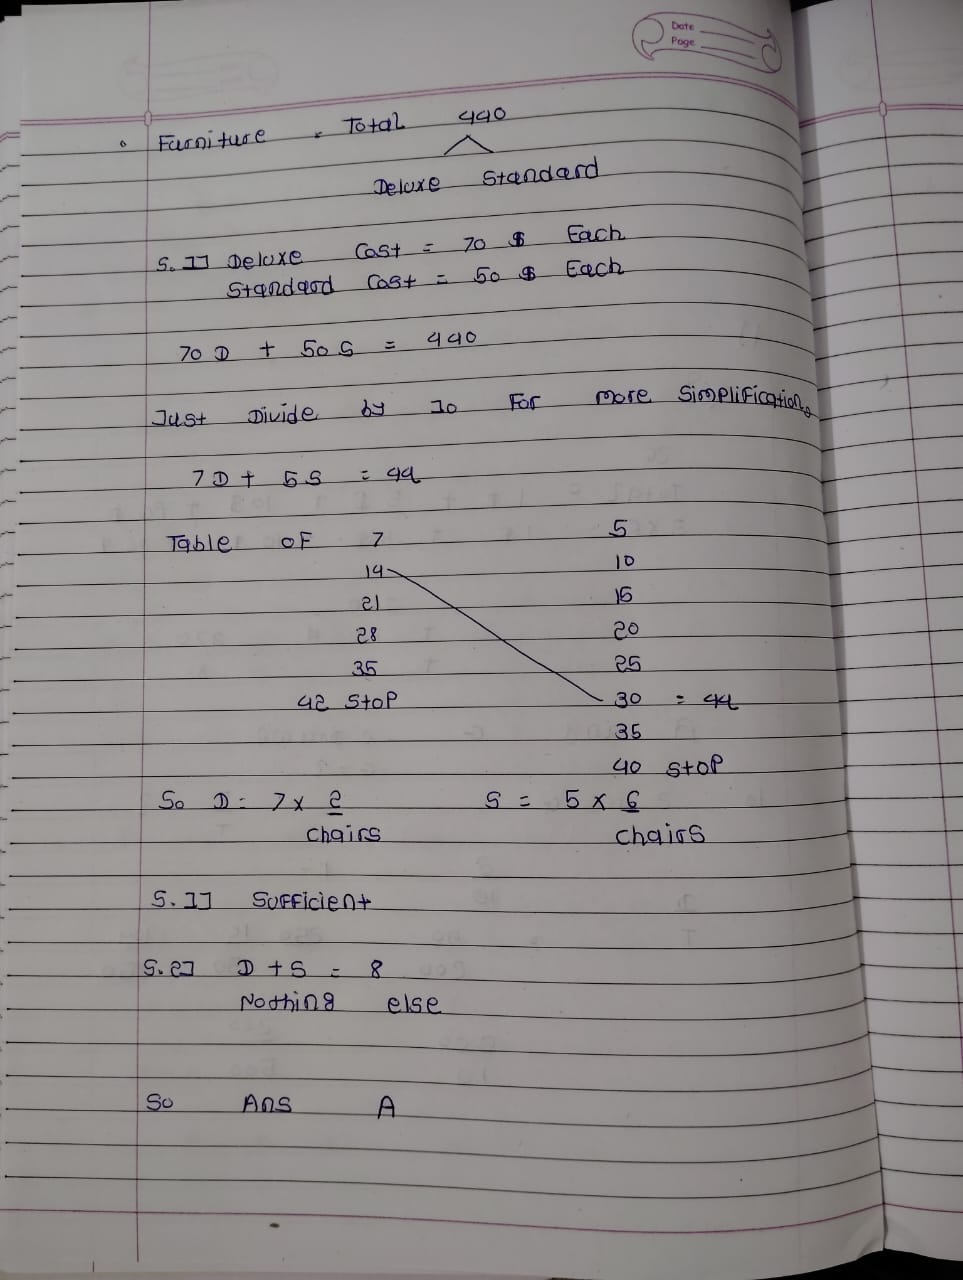 Date
Page
Furniture . Total 440
Deluxe Standard
S.1] Deluxe Cost = 70 $ Each
Standard Cost = 50 $ Each
70 D + 50 S = 440
Just Divide by 10 For more Simplification.
7 D + 5 S = 44
Table OF 7 5
14 10
21 15
28 20
35 25
42 STOP 30 = 44
35
40 STOP
So D = 7 x 2 S = 5 x 6
chairs chairs
S.1] Sufficient
S.2] D + S = 8
Nothing else
So Ans A